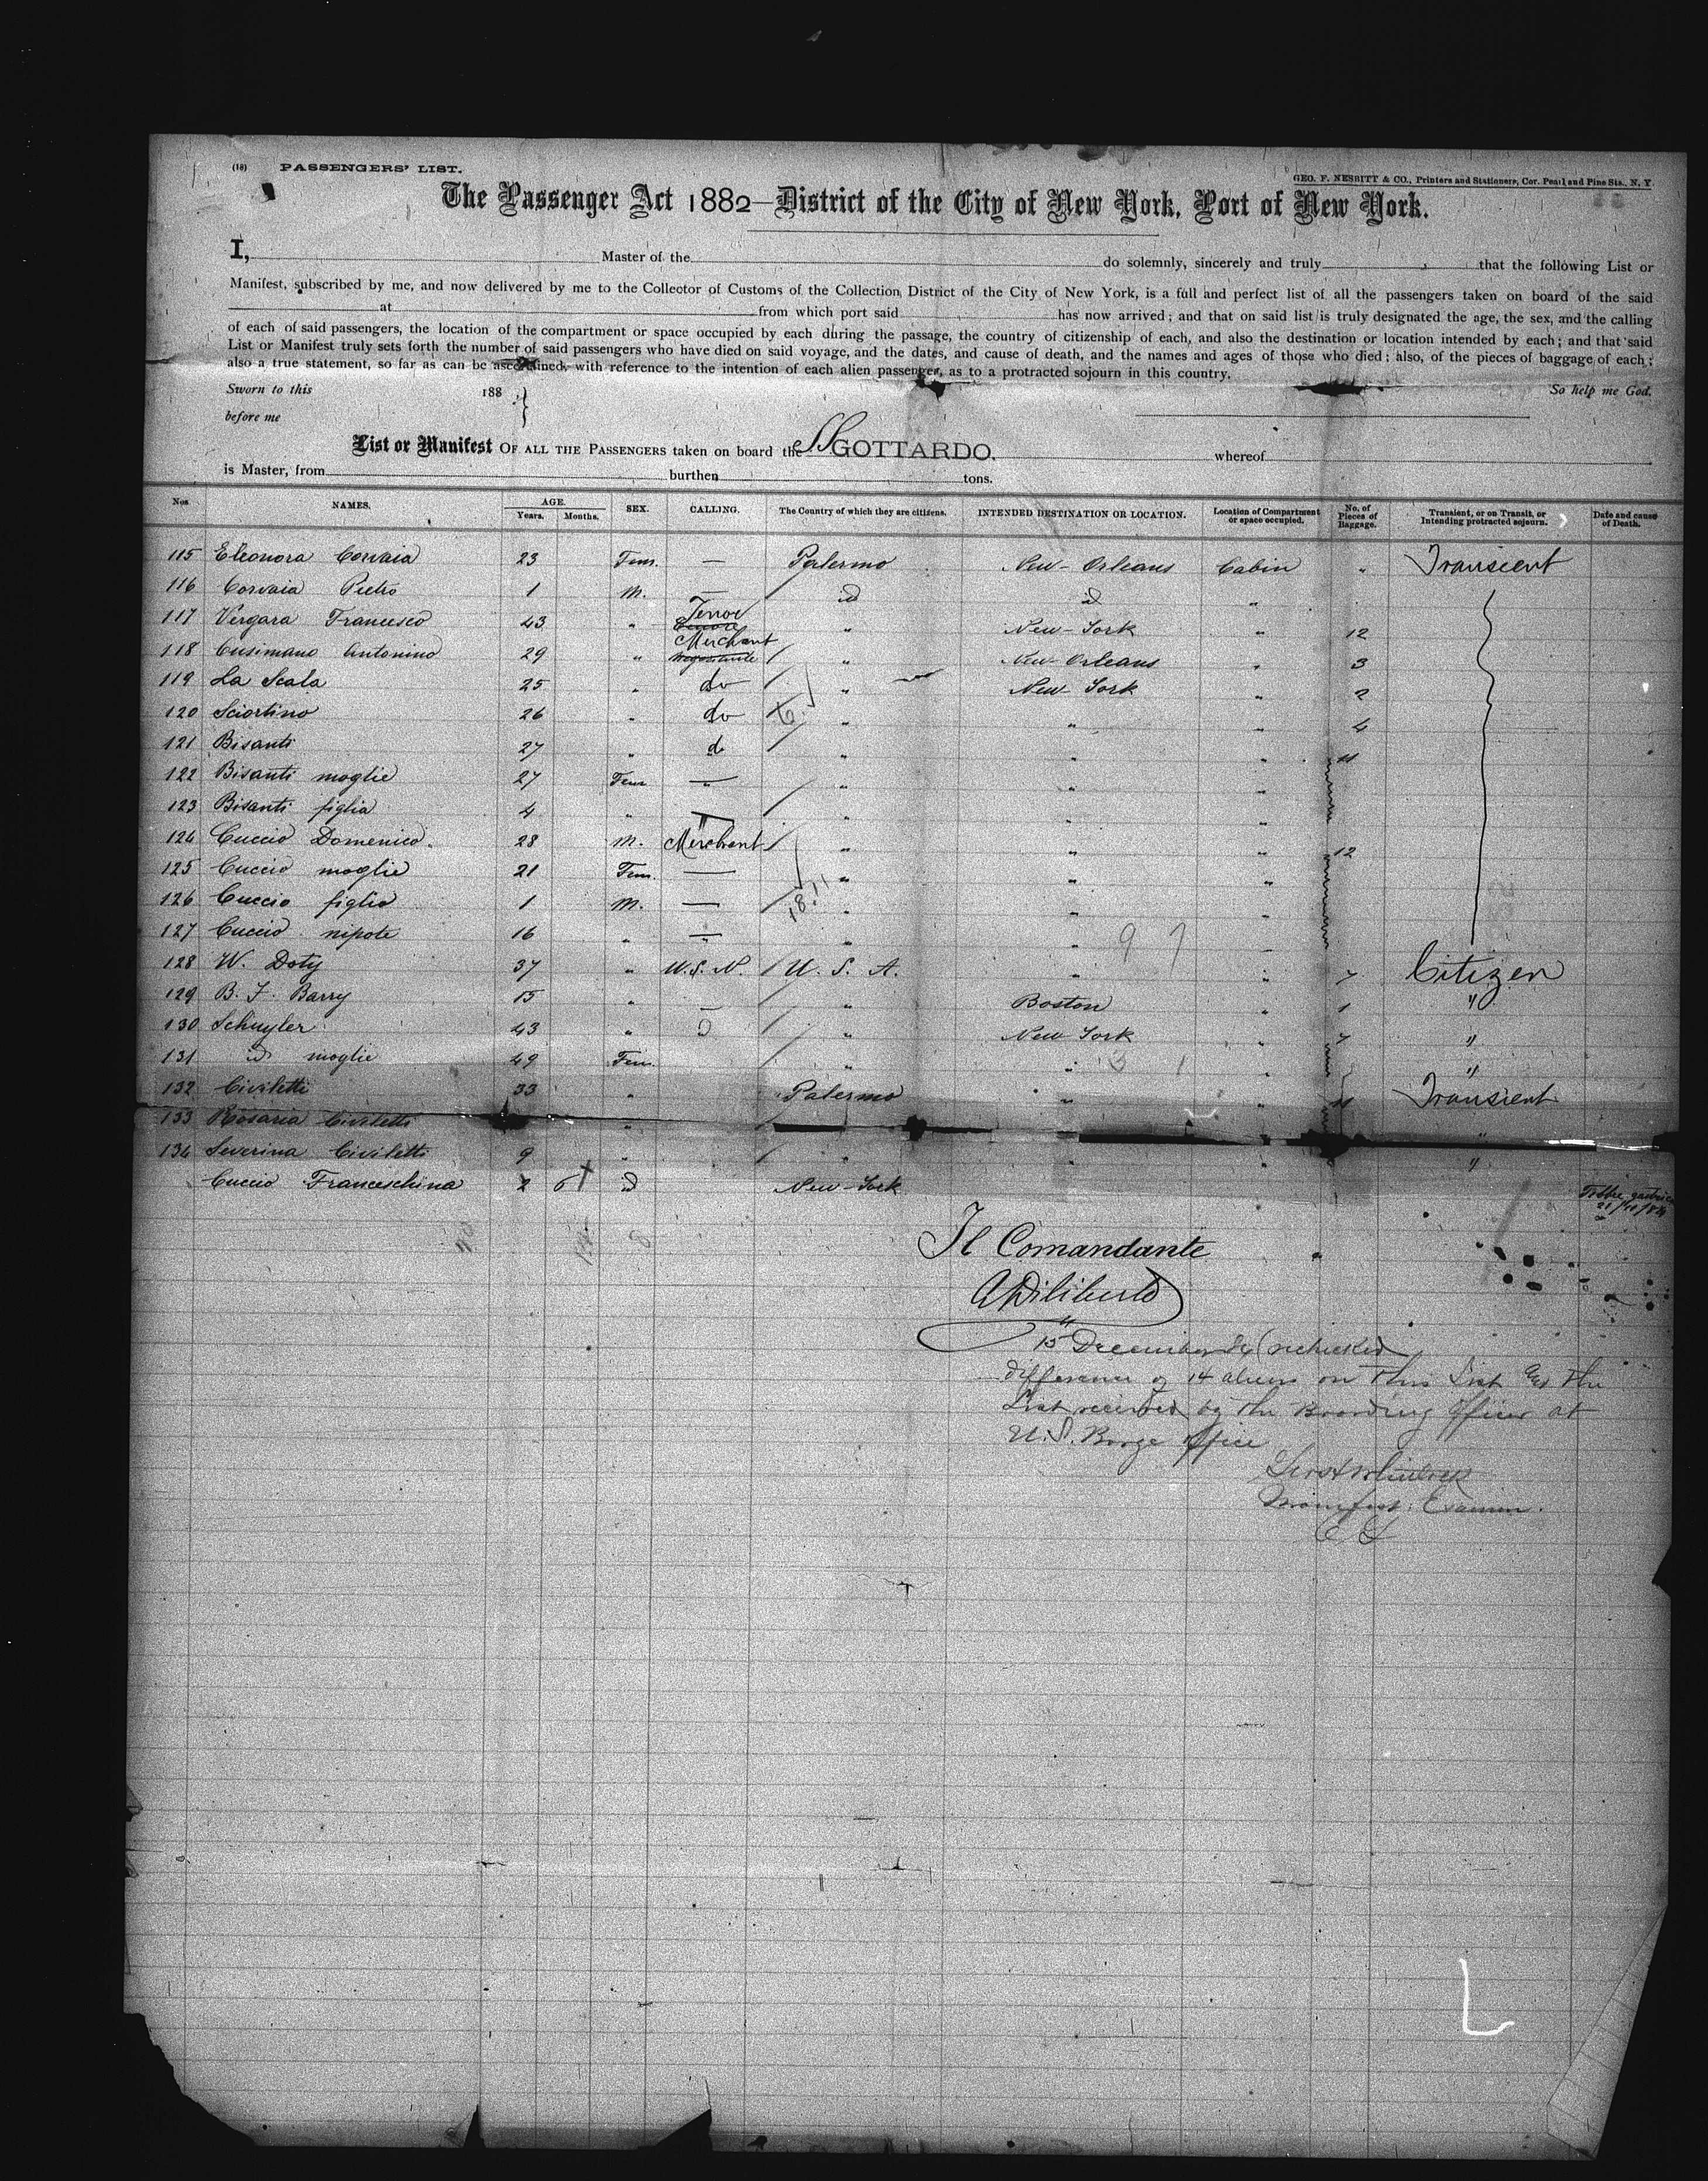 (18) PASSENGERS' LIST.
GEO. F. NESBITT & CO., Printers and Stationers, Cor. Pearl and Pine Sts., N. Y.
The Passenger Act 1882—District of the City of New York, Port of New York.
I, Master of the do solemnly, sincerely and truly that the following List or
Manifest, subscribed by me, and now delivered by me to the Collector of Customs of the Collection District of the City of New York, is a full and perfect list of all the passengers taken on board of the said
at from which port said has now arrived; and that on said list is truly designated the age, the sex, and the calling
of each of said passengers, the location of the compartment or space occupied by each during the passage, the country of citizenship of each, and also the destination or location intended by each; and that said
List or Manifest truly sets forth the number of said passengers who have died on said voyage, and the dates, and cause of death, and the names and ages of those who died; also, of the pieces of baggage of each;
also a true statement, so far as can be ascertained, with reference to the intention of each alien passenger, as to a protracted sojourn in this country.
Sworn to this 188 } So help me God.
before me
List or Manifest OF ALL THE PASSENGERS taken on board the SS GOTTARDO. whereof
is Master, from burthen tons.
Nos. NAMES. AGE. Years. Months. SEX. CALLING. The Country of which they are citizens. INTENDED DESTINATION OR LOCATION. Location of Compartment or space occupied. No. of Pieces of Baggage. Transient, or on Transit, or Intending protracted sojourn. Date and cause of Death.
115 Eleonora Corvaia 23 Fem. — Palermo New-Orleans Cabin " Transient
116 Corvaia Pietro 1 M. — id id "
117 Vergara Francesco 43 " Tenor " New-York " 12
118 Cusimano Antonino 29 " Merchant Negoziante " New-Orleans " 3
119 La Scala 25 " do " New York " 2
120 Sciortino 26 " do " " " 4
121 Bisanti 27 " do " " " 11
122 Bisanti moglie 27 Fem — " " "
123 Bisanti figlia 4 " " " "
124 Cuccio Domenico. 28 M. Merchant " " " 12
125 Cuccio moglie 21 Fem. — " " "
126 Cuccio figlio 1 M. — " " "
127 Cuccio nipote 16 " — " " 97
128 W. Doty 37 " U.S.N. U. S. A. " " 7 Citizen
129 B. F. Barry 15 " — " Boston " 1 "
130 Schuyler 43 " " New York " 7 "
131 id moglie 49 Fem. " " " "
132 Civiletti 33 " Palermo " " 11 Transient
133 Rosaria Civiletti " "
134 Severina Civiletti 9 " " " "
Cuccio Franceschina 2 6 id New-York
Il Comandante
A Diliberto
15 December 84 (rechecked
difference of 14 aliens on this List & the
List received by the Boarding Officer at
U.S. Barge Office
Manifest Examin.